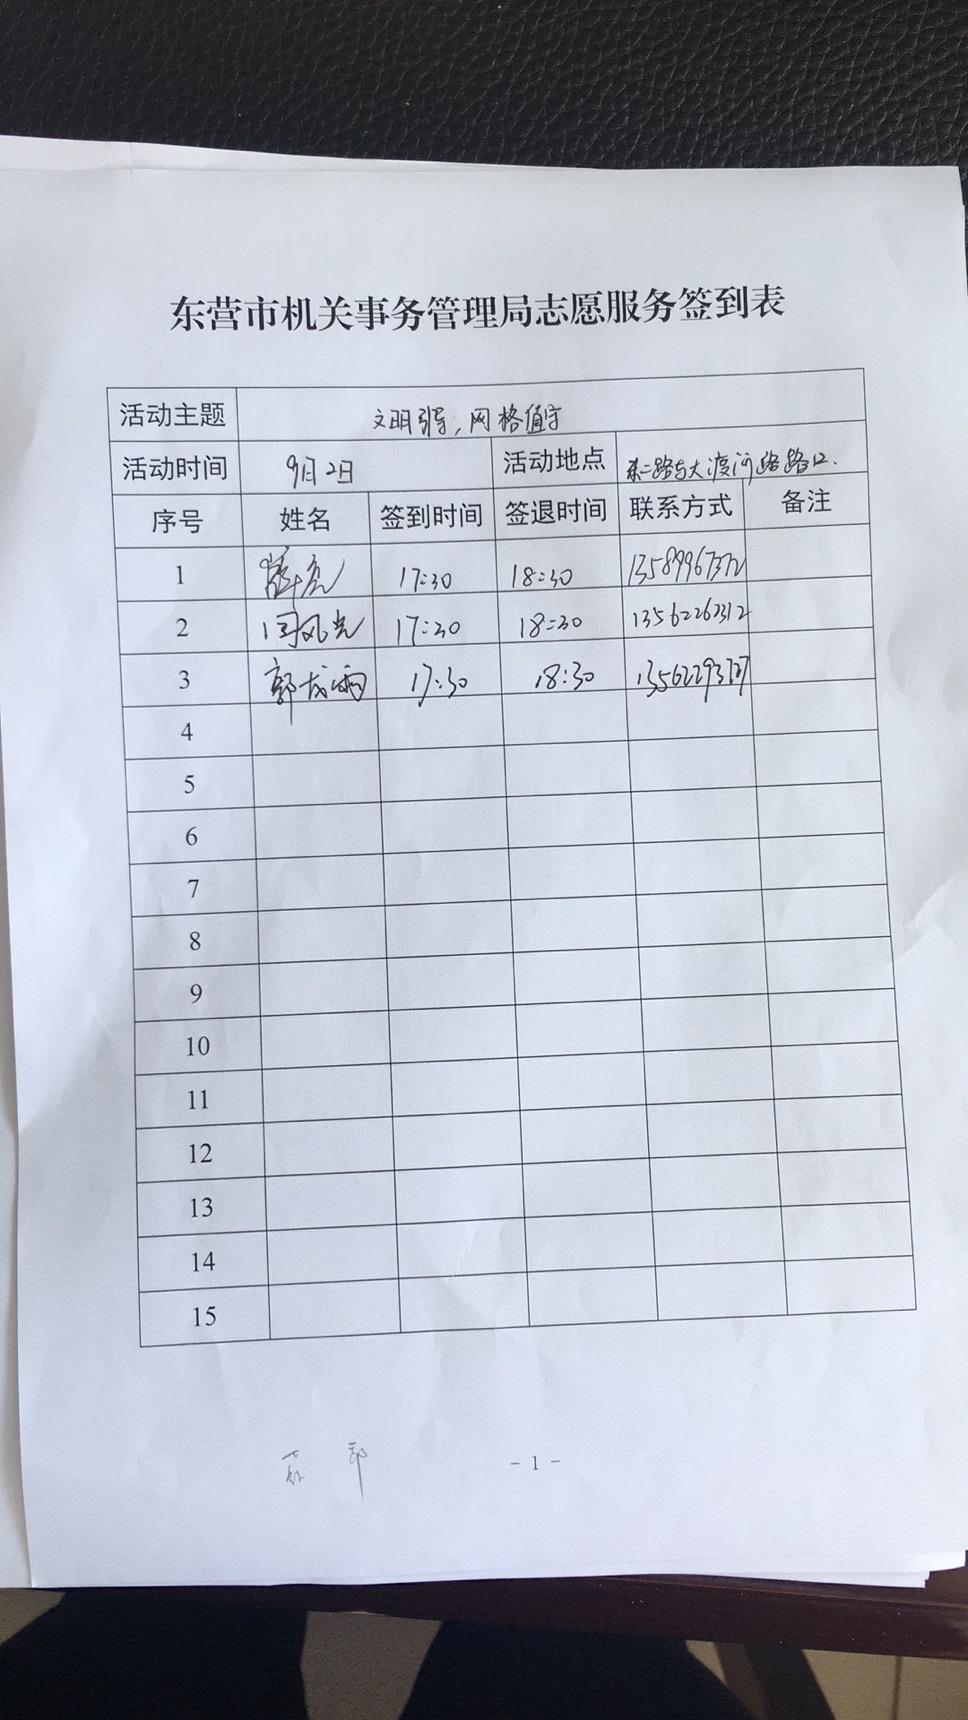 东营市机关事务管理局志愿服务签到表
活动主题 文明引导,网格值守
活动时间 9月2日 活动地点 东二路与大渡河路路口.
序号 姓名 签到时间 签退时间 联系方式 备注
1 亮 17:30 18:30 13589967372
2 闫风光 17:30 18:30 13562262312
3 郭成雨 17:30 18:30
4
5
6
7
8
9
10
11
12
13
14
15
- 1 -